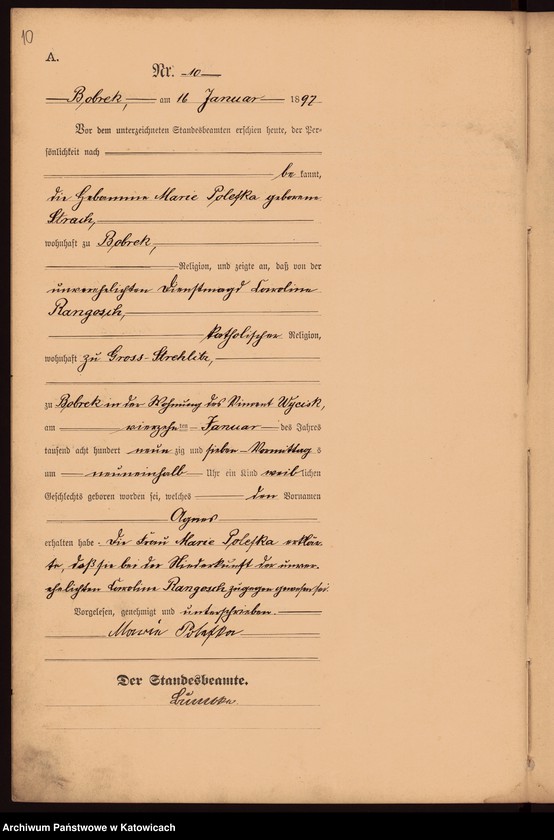 10
A.
Nr. 10
Bobrek, am 16 Januar 1897
Vor dem unterzeichneten Standesbeamten erschien heute, der Per-
sönlichkeit nach
be kannt,
die Hebamme Marie Polefka geborene
Strach,
wohnhaft zu Bobrek,
Religion, und zeigte an, daß von der
unverehelichten Dienstmagd Caroline
Rangosch,
katholischer Religion,
wohnhaft zu Gross-Strehlitz,
zu Bobrek in der Wohnung des Vincent Wycisk,
am vierzehn ten Januar des Jahres
tausend acht hundert neun zig und sieben Vormittag s
um neuneinhalb Uhr ein Kind weib lichen
Geschlechts geboren worden sei, welches den Vornamen
Agnes
erhalten habe. Die Frau Marie Polefka erklär-
te, daß sie bei der Niederkunft der unver-
ehelichten Caroline Rangosch zugegen gewesen sei.
Vorgelesen, genehmigt und unterschrieben.
Marie Polefka
Der Standesbeamte.
Archiwum Państwowe w Katowicach